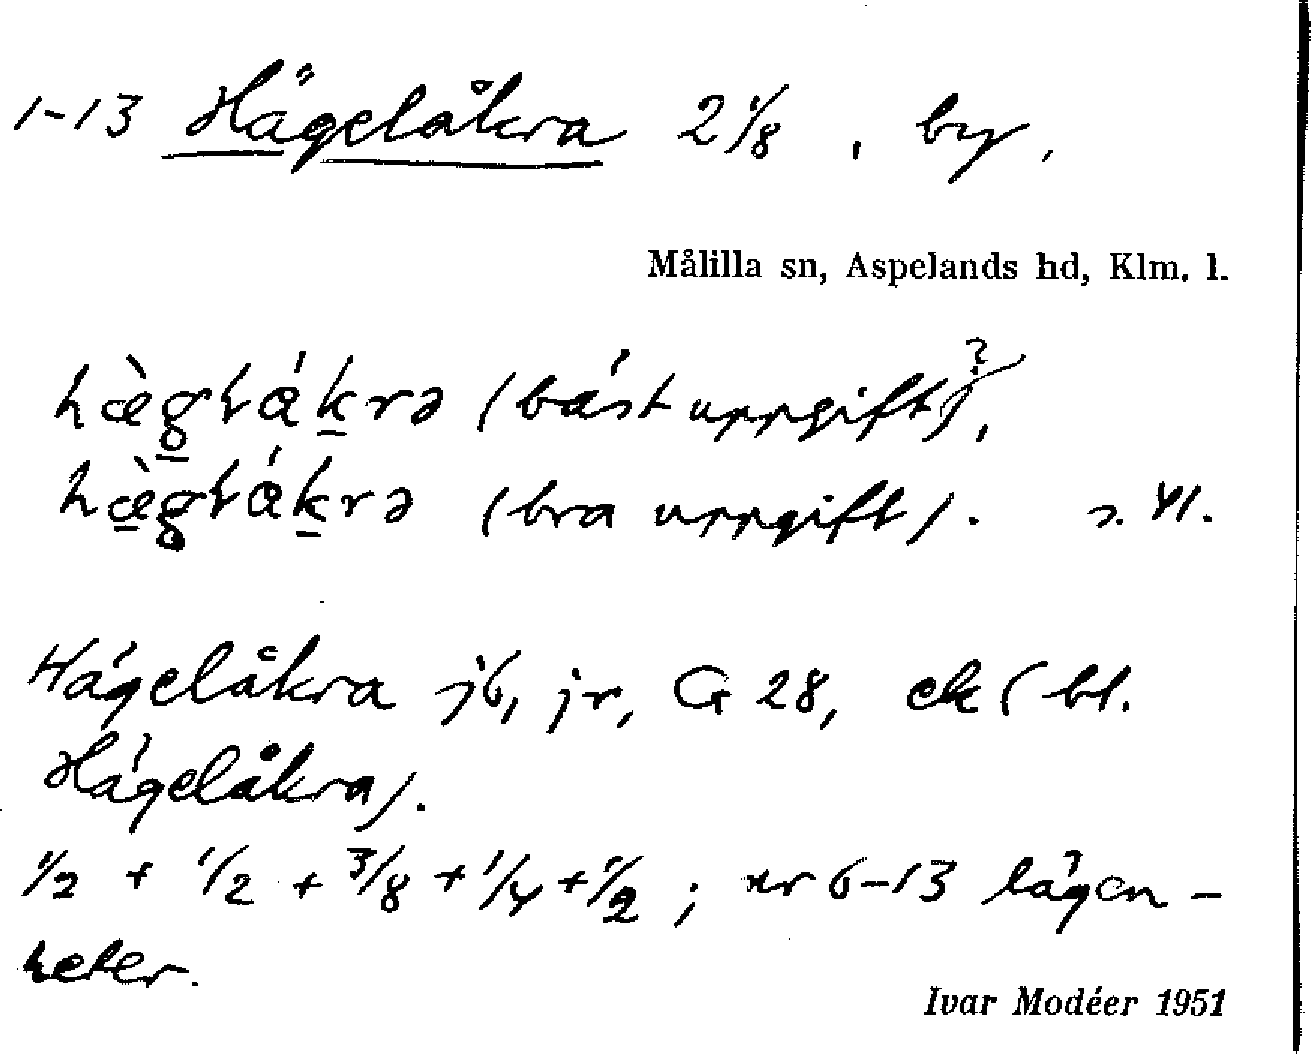 1-13 Hägelåkra 2 1/8, by.
Målilla sn, Aspelands hd, Klm. l.
(bäst uppgift)?,
(bra uppgift).
Hägelåkra jb, jr, G 28, ek (bl.
Hägelåkra).
1/2 + 1/2 + 3/8 + 1/4 + 1/2 ; nr 6-13 lägen-
heter.
Ivar Modéer 1951